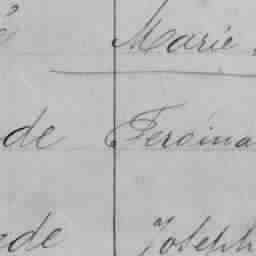 Marie
de Ferdina
de Joseph